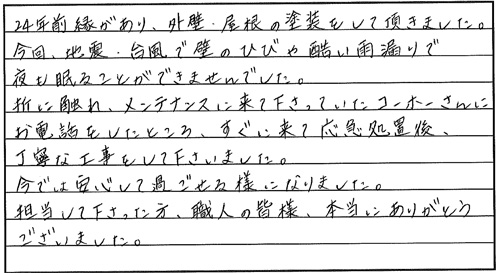 24年前縁があり、外壁・屋根の塗装をして頂きました。
今回、地震・台風で壁のひびや酷い雨漏りで
夜も眠ることができませんでした。
折に触れ、メンテナンスに来て下さっていたコーホーさんに
お電話をしたところ、すぐに来て応急処置後、
丁寧な工事をして下さいました。
今では安心して過ごせる様になりました。
担当して下さった方、職人の皆様、本当にありがとう
ございました。